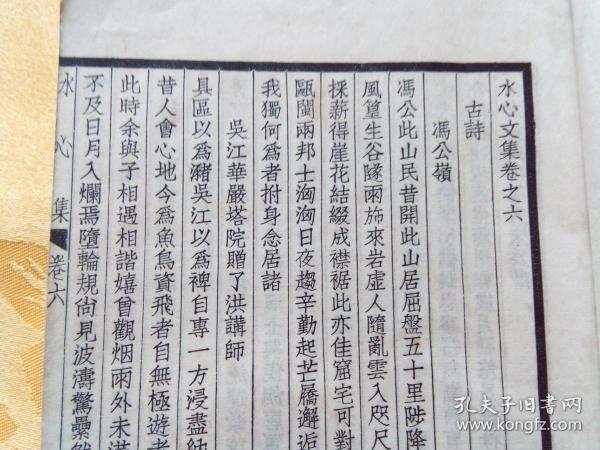 水心文集卷之六
古詩
馮公嶺
馮公此山民昔開此山居屈盤五十里陟降
風篁生谷隧雨旆來岩虛人隨亂雲入咫尺
採薪得崖花結綴成襟裾此亦佳窟宅可對
甌閩兩邦士洶洶日夜趨辛勤起芒屩邂逅
我獨何為者拊身念居諸
吳江華嚴塔院贈了洪講師
具區以為瀦吳江以為裨自專一方浸盡納
昔人會心地今為魚鳥資飛者自無極遊者
此時余與子相遇相諧嬉曾觀烟雨外未滿
不及日月入爛焉墮輪規尙見波濤驚纍然
水心集 卷六
孔夫子旧书网